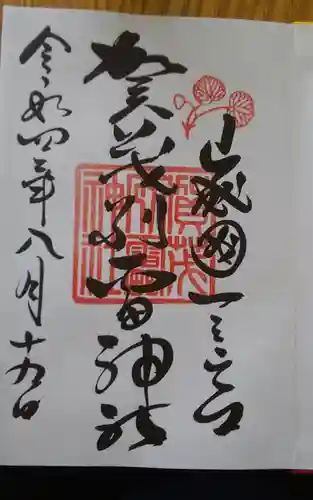 山城国一之宮
賀茂別雷神社
令和四年八月十五日
賀茂別雷神社